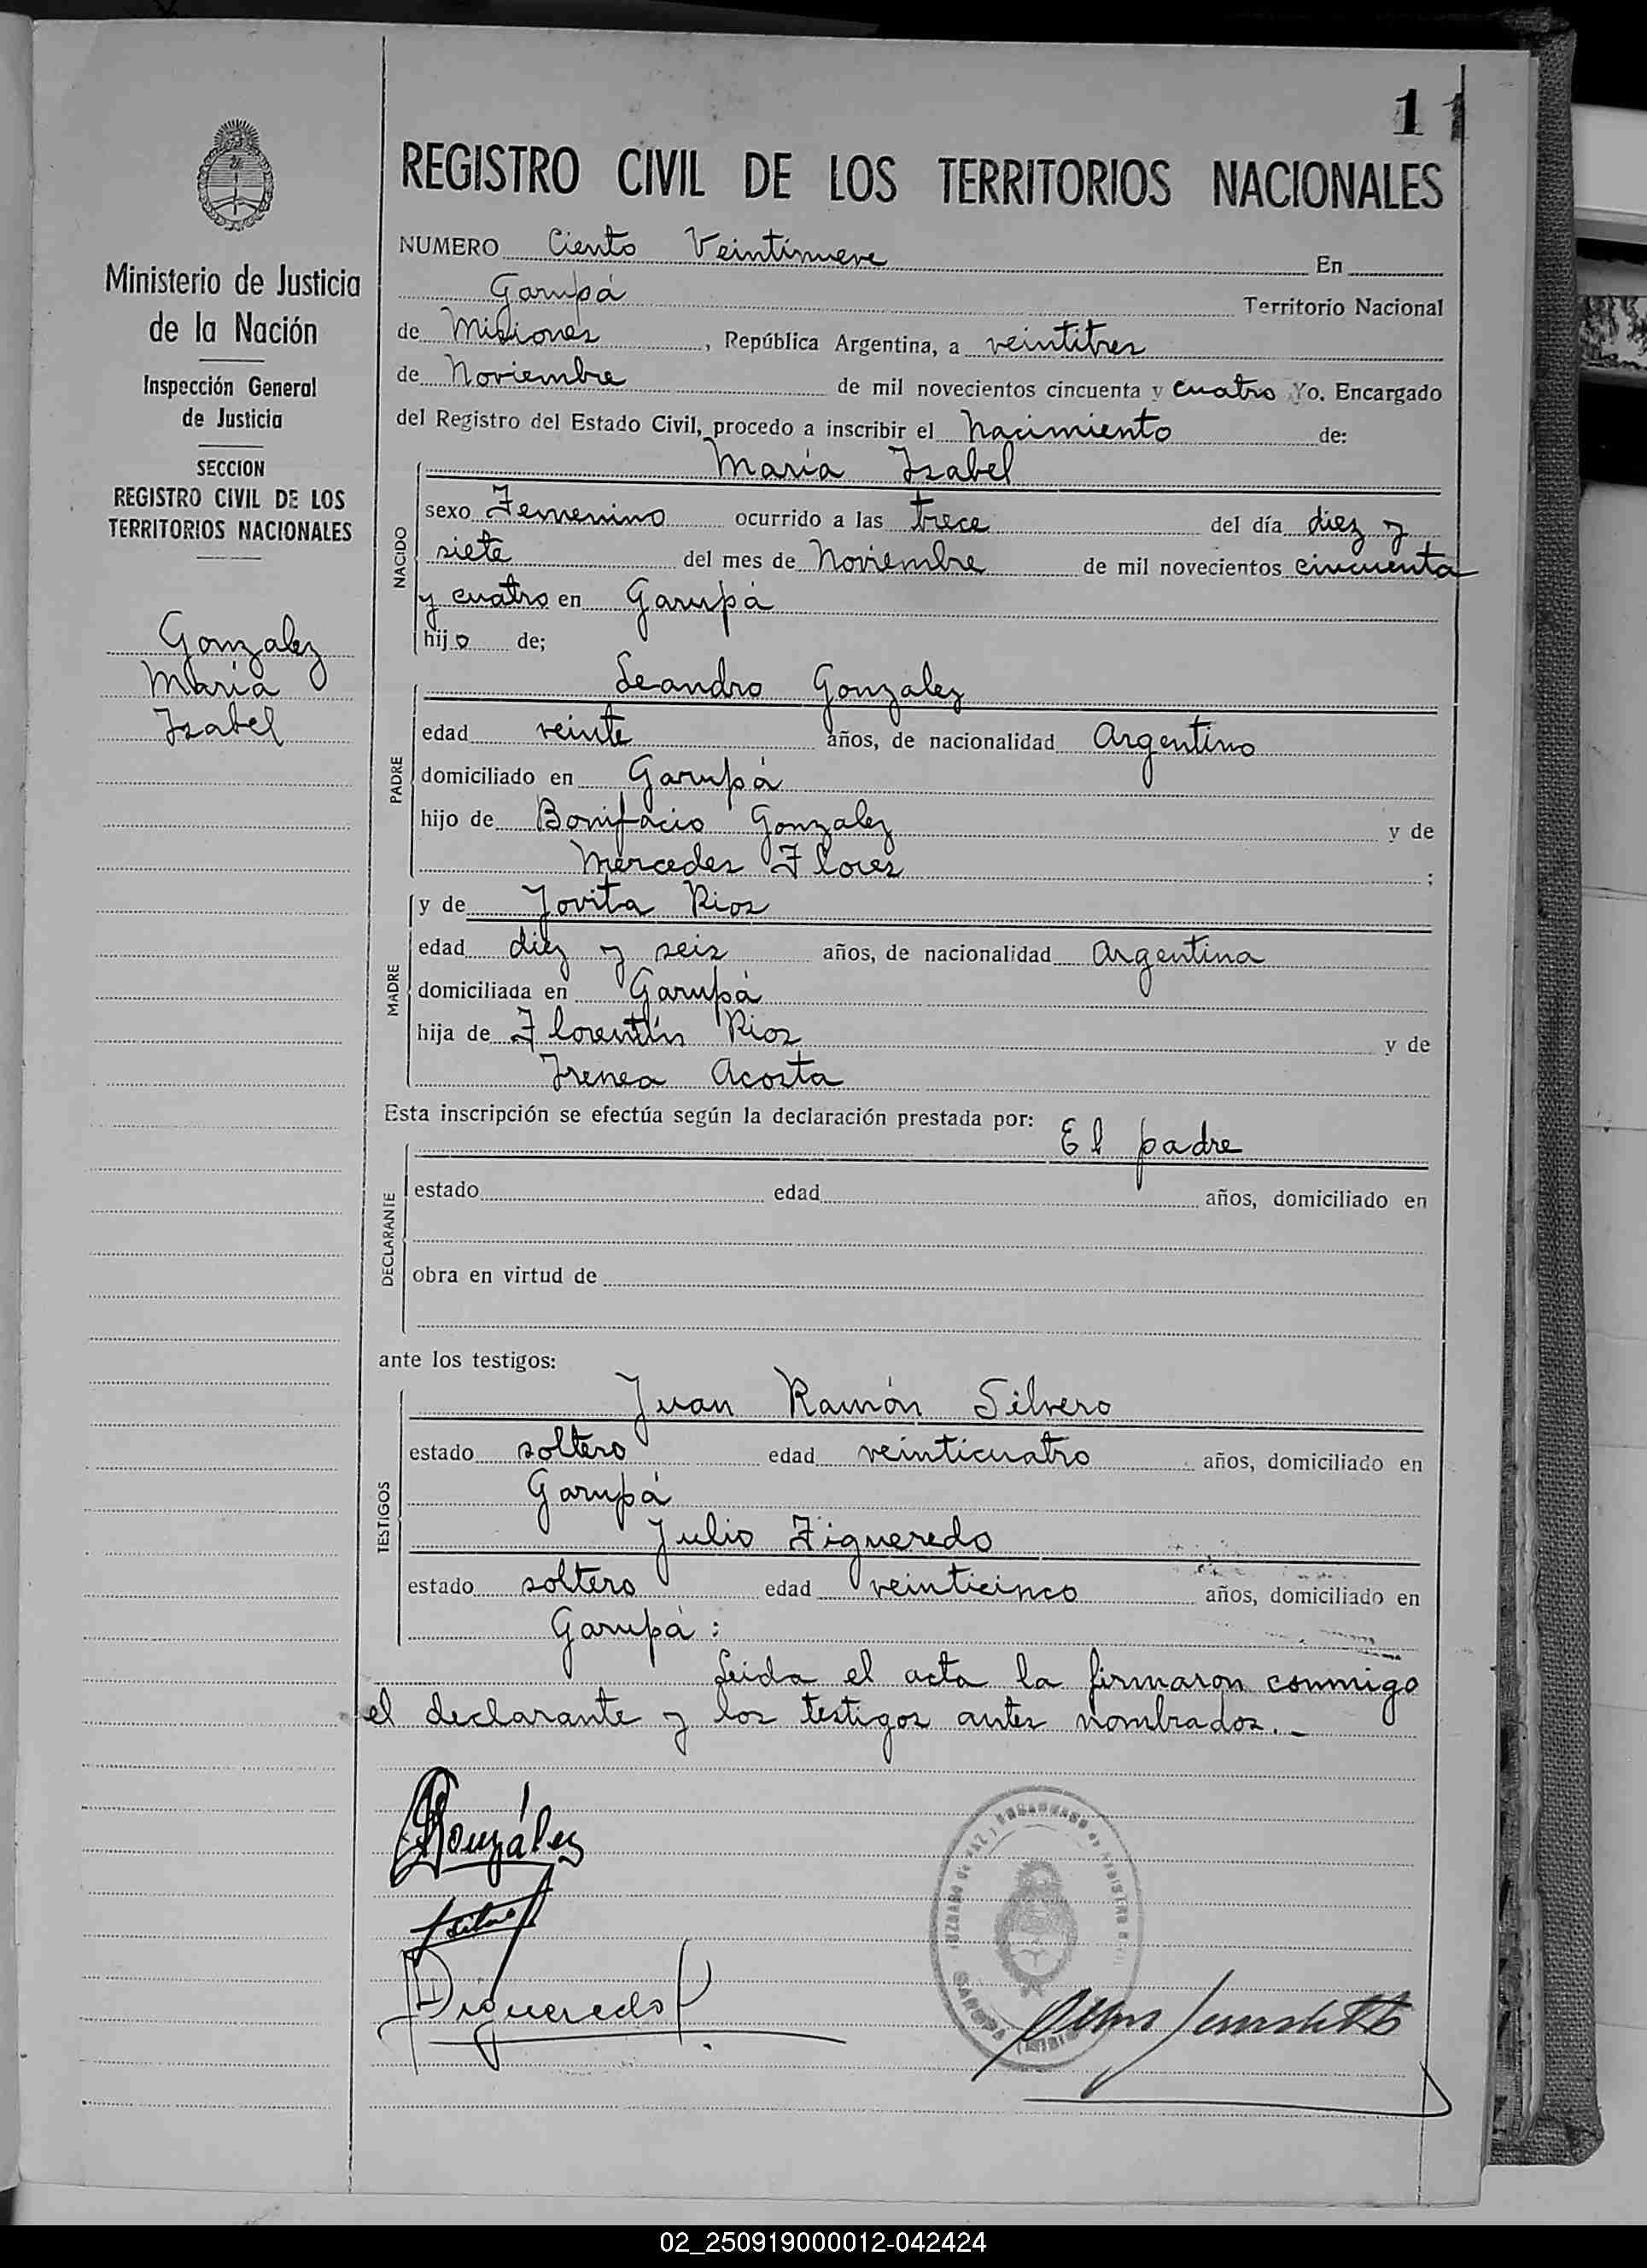 1 1
REGISTRO CIVIL DE LOS TERRITORIOS NACIONALES
Ministerio de Justicia
de la Nación
Inspección General
de Justicia
SECCION
REGISTRO CIVIL DE LOS
TERRITORIOS NACIONALES
Gonzalez
Maria
Isabel
NUMERO Ciento Veintinueve En
Garupá Territorio Nacional
de Misiones, República Argentina, a veintitres
de Noviembre de mil novecientos cincuenta y cuatro Yo. Encargado
del Registro del Estado Civil, procedo a inscribir el Nacimiento de:
NACIDO
Maria Isabel
sexo Femenino ocurrido a las trece del día diez y
siete del mes de Noviembre de mil novecientos cincuenta
y cuatro en Garupá
hijo de;
PADRE
Leandro Gonzalez
edad veinte años, de nacionalidad Argentino
domiciliado en Garupá
hijo de Bonifacio Gonzalez y de
Mercedes Flores ;
MADRE
y de Jovita Rios
edad diez y seis años, de nacionalidad Argentina
domiciliada en Garupá
hija de Florentín Rios y de
Irenea Acosta
Esta inscripción se efectúa según la declaración prestada por:
El padre
DECLARANTE
estado edad años, domiciliado en
obra en virtud de
ante los testigos:
TESTIGOS
Juan Ramón Silvero
estado soltero edad veinticuatro años, domiciliado en
Garupá
Julio Figueredo
estado soltero edad veinticinco años, domiciliado en
Garupá:
Leida el acta la firmaron conmigo
el declarante y los testigos antes nombrados.-
González
Figueredo
JUZGADO de PAZ y ENCARGADO de REGISTRO
GARUPA
02_250919000012-042424